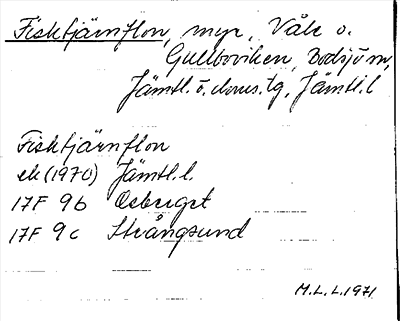 Fisktjärnflon, myr, Våle o.
Gullboviken, Bodsjö sn,
Jämtl. ö. doms.tg, Jämtl. l
Fisktjärnflon
ek (1970) Jämtl. l.
17F 9b Åsberget
17F 9c Strångsund
M.L.L. 1971